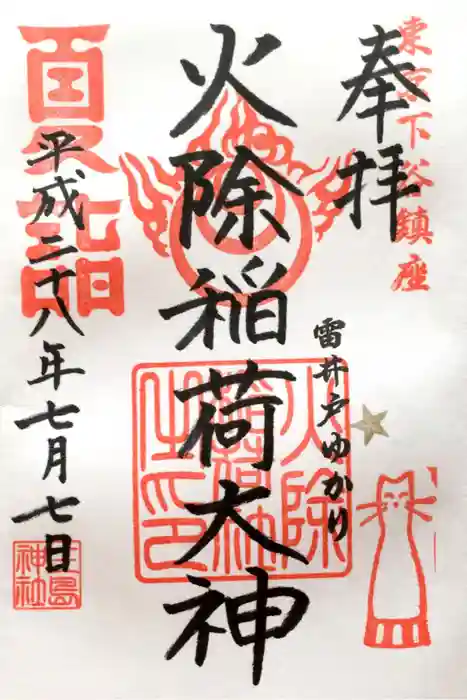 東京下谷鎮座
奉拝
雷井戸ゆかり
火除稲荷大神
火除稲荷神社之印
夏詣
平成二十八年七月七日
神社